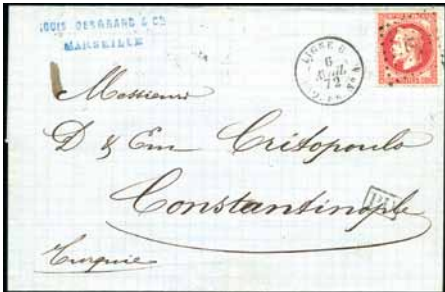 LOUIS DESGRAND & Cº
MARSEILLE
LIGNE
6
72
Messieurs
D & Em Critopoulo
Constantinople
PD
Turquie